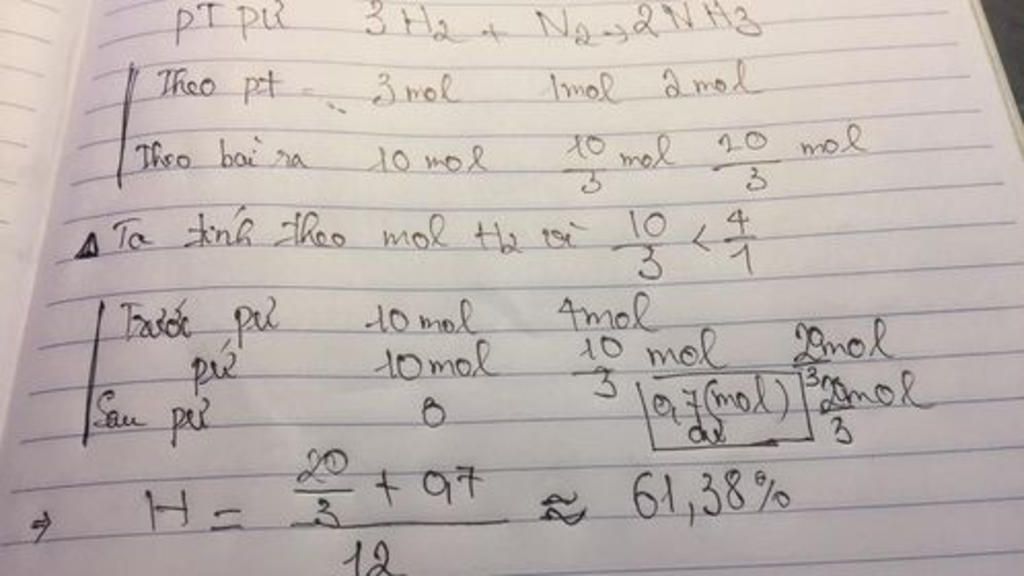 PT pứ 3H₂ + N₂ → 2NH3
Theo pt = 3mol 1mol 2mol
Theo bài ra 10mol 10/3 mol 20/3 mol
Ta tính theo mol H₂ vì 10/3 < 4/1
Trước pứ 10mol 4mol
pứ 10mol 10/3 mol 20/3 mol
Sau pứ 0 0,7(mol) dư 20/3 mol
⇒ H = (20/3 + 0,7)/12 ≈ 61,38%